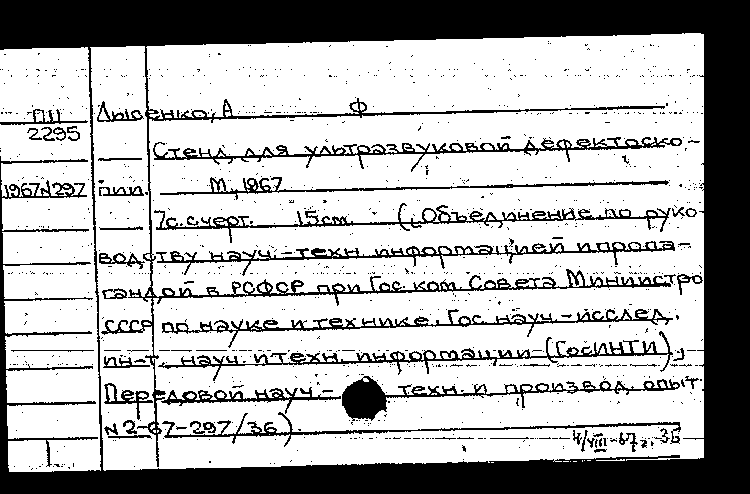 ПП Лысенко, А Ф
2295
Стенд для ультразвуковой дефектоско-
1967N297 пии. М., 1967
7с. с черт. 15см. („Объединение по руко-
водству науч.-техн информацией и пропа-
гандой в РСФСР при Гос ком Совета Министро
СССР по науке и технике. Гос. науч-исслед.
ин-т. науч. и техн. информации (ГосИНТИ),
Передовой науч.- техн. и производ. опыт.
N2-67-297/36).
4/VIII-67г. ЗБ